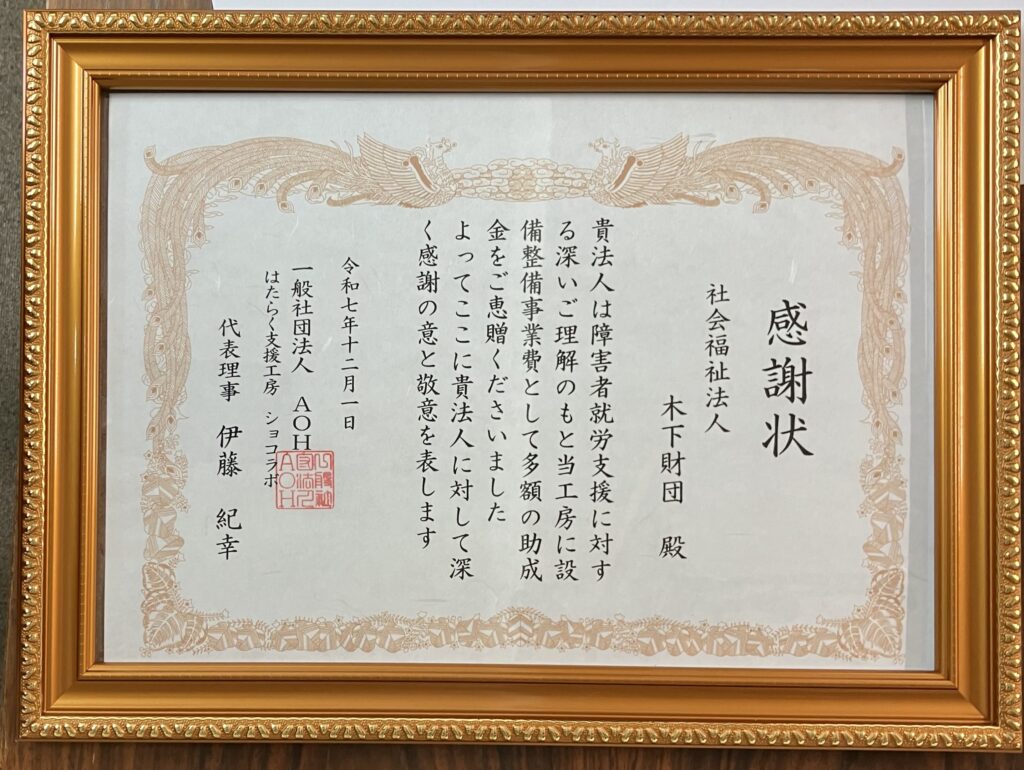 感謝状
社会福祉法人
木下財団 殿
貴法人は障害者就労支援に対す
る深いご理解のもと当工房に設
備整備事業費として多額の助成
金をご恵贈くださいました
よってここに貴法人に対して深
く感謝の意と敬意を表します
令和七年十二月一日
一般社団法人 AOH
はたらく支援工房 ショコラボ
代表理事 伊藤 紀幸
AOH